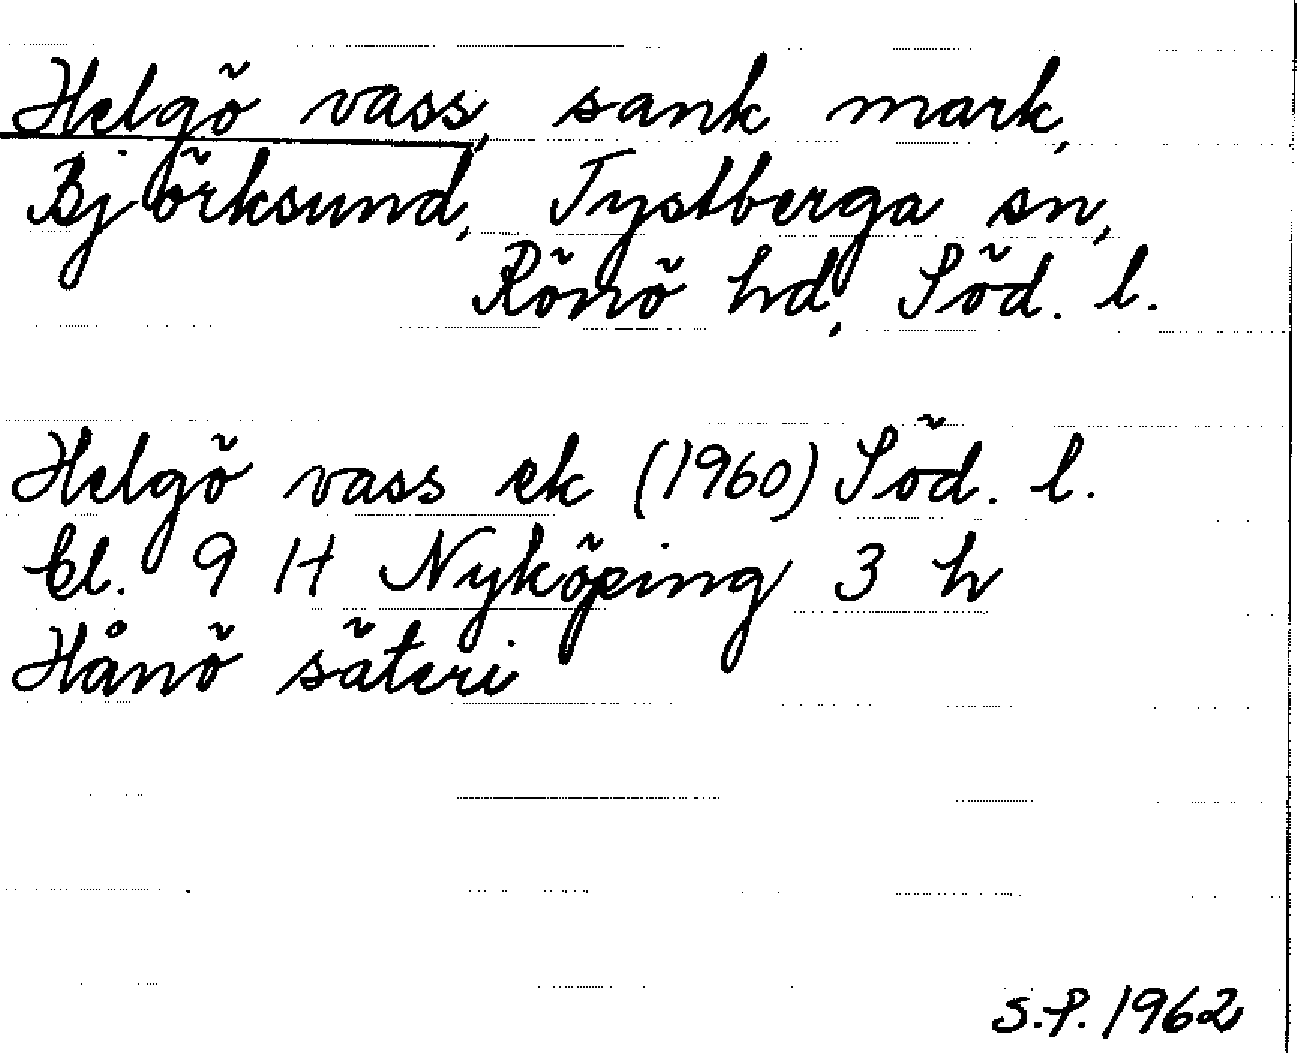 Helgö vass, sank mark,
Björksund, Tystberga sn,
Rönö hd, Söd. l.
Helgö vass ek (1960) Söd. l.
bl. 9 H Nyköping 3 h
Hånö säteri
S.P. 1962